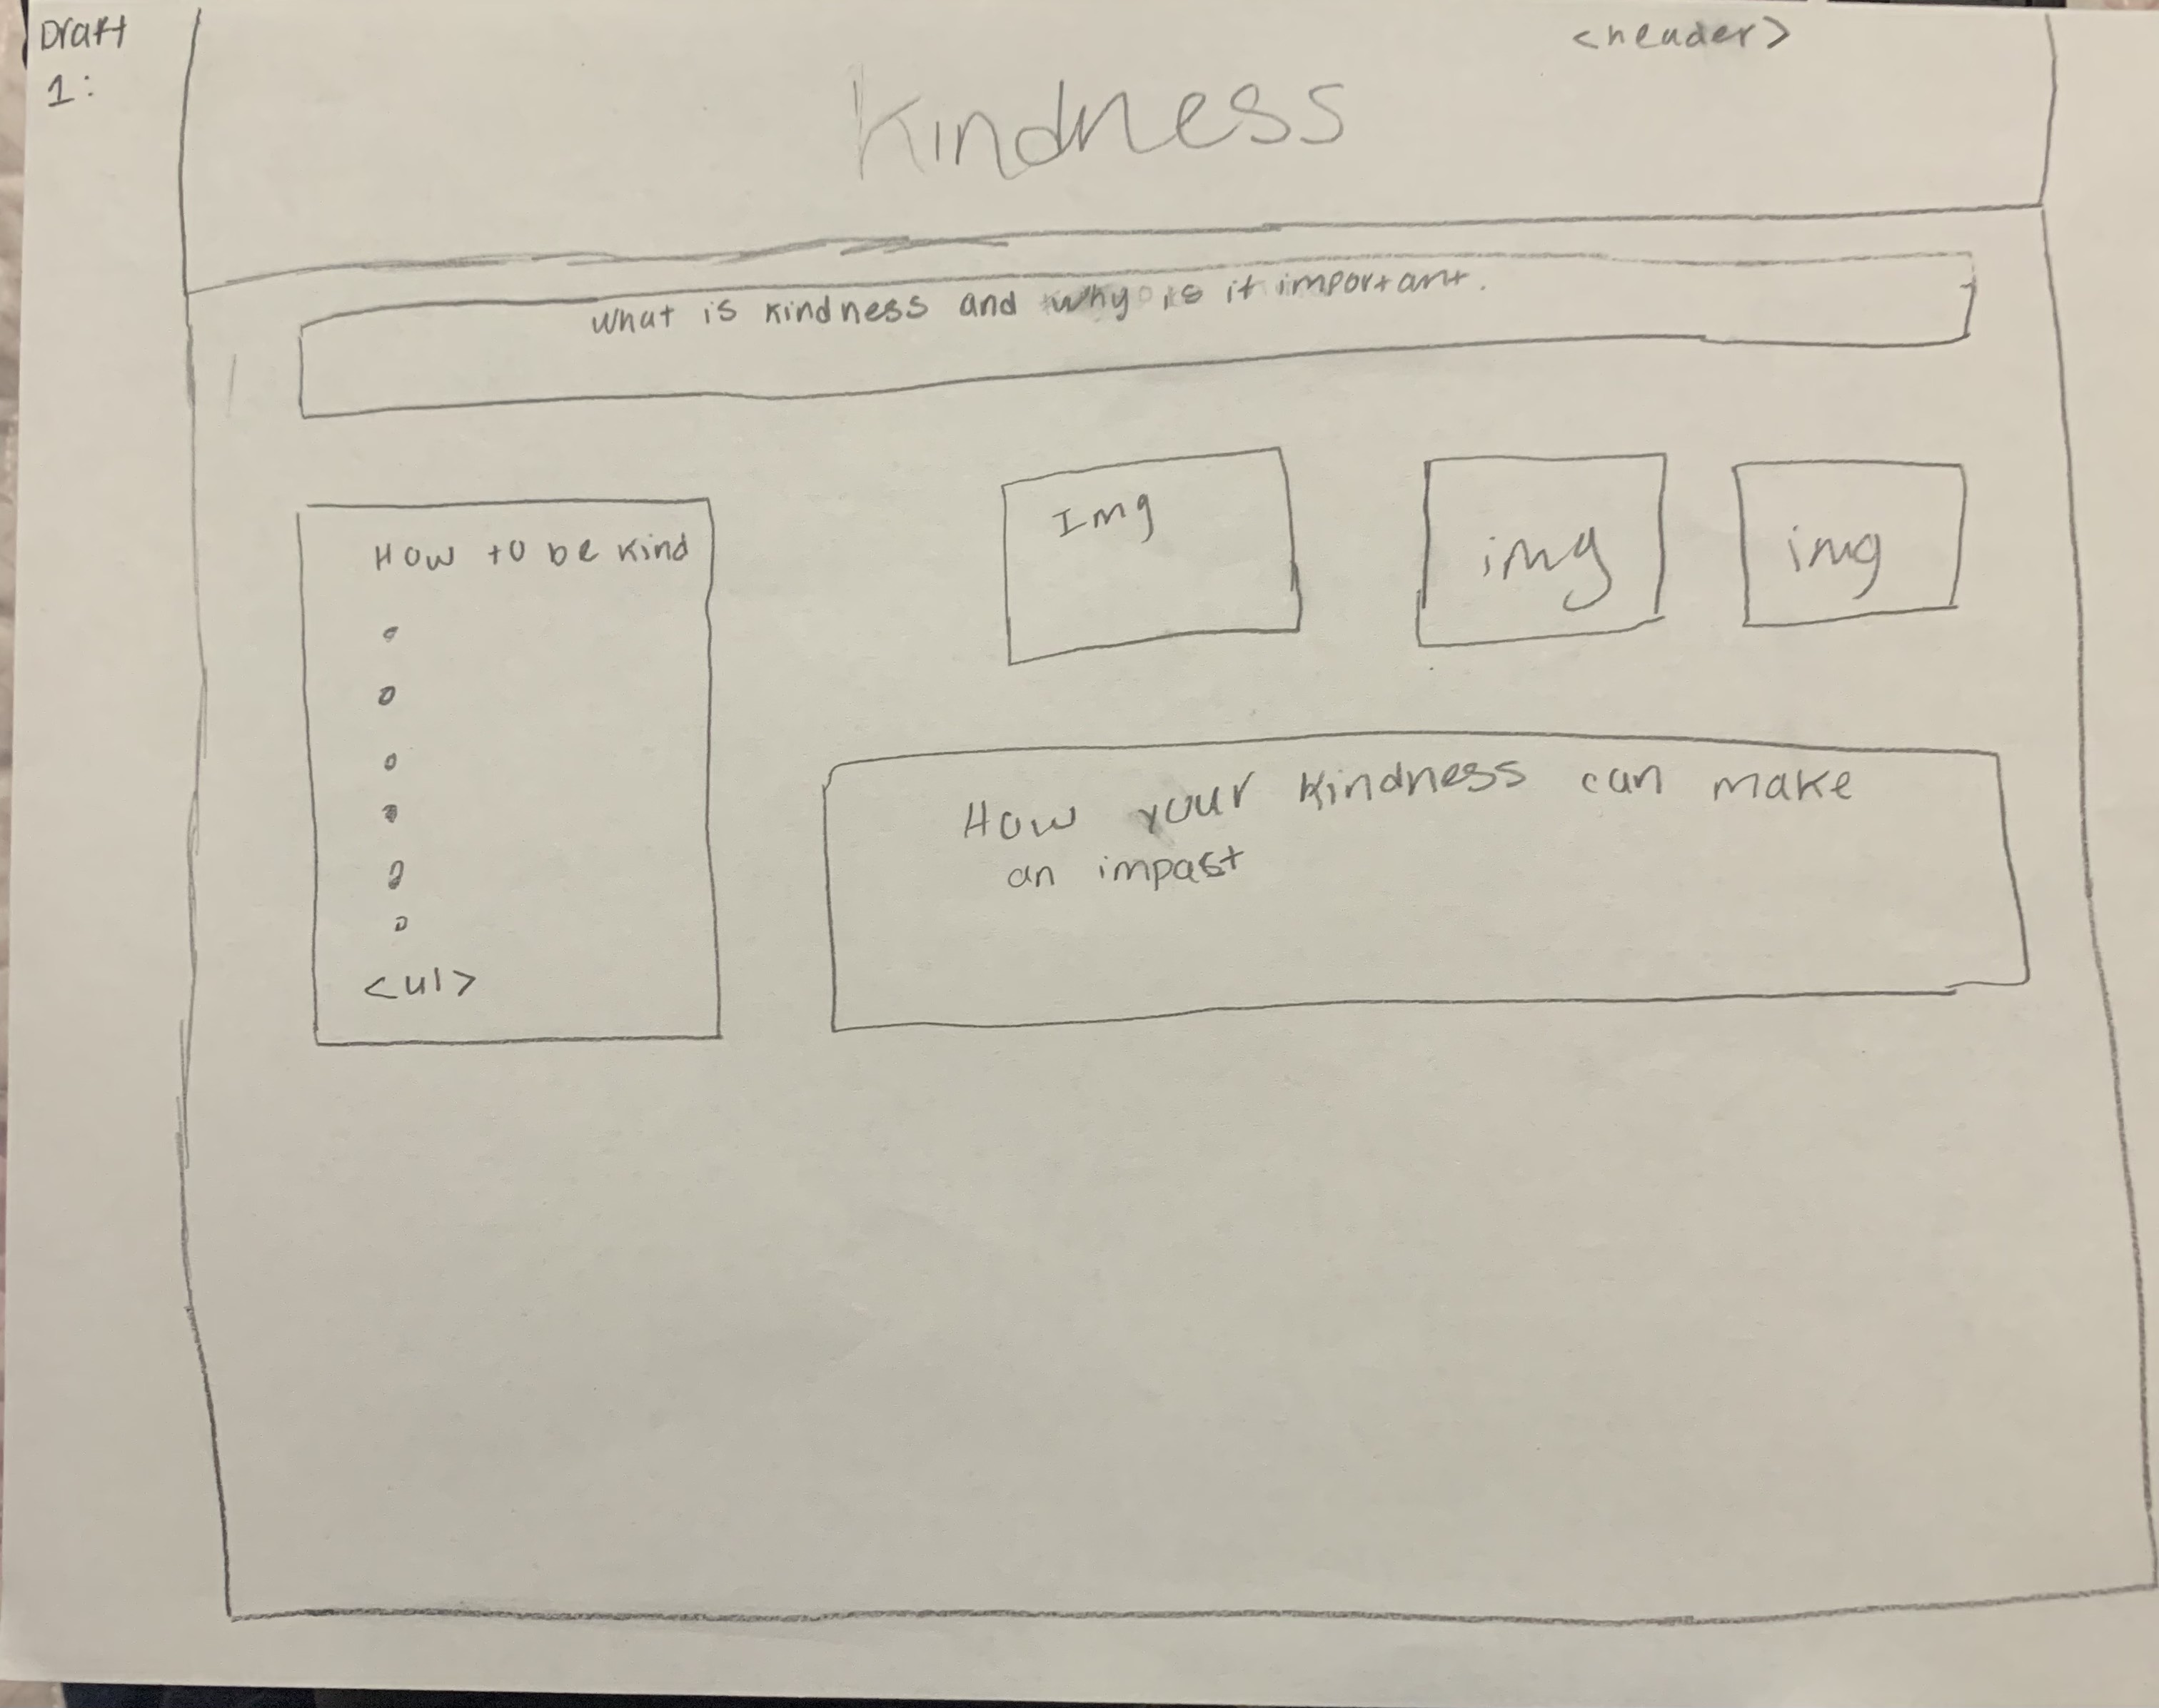 Draft
1:
<header>
Kindness
What is kindness and why is it important.
How to be kind
Img
img
img
<ul>
How your kindness can make
an impact